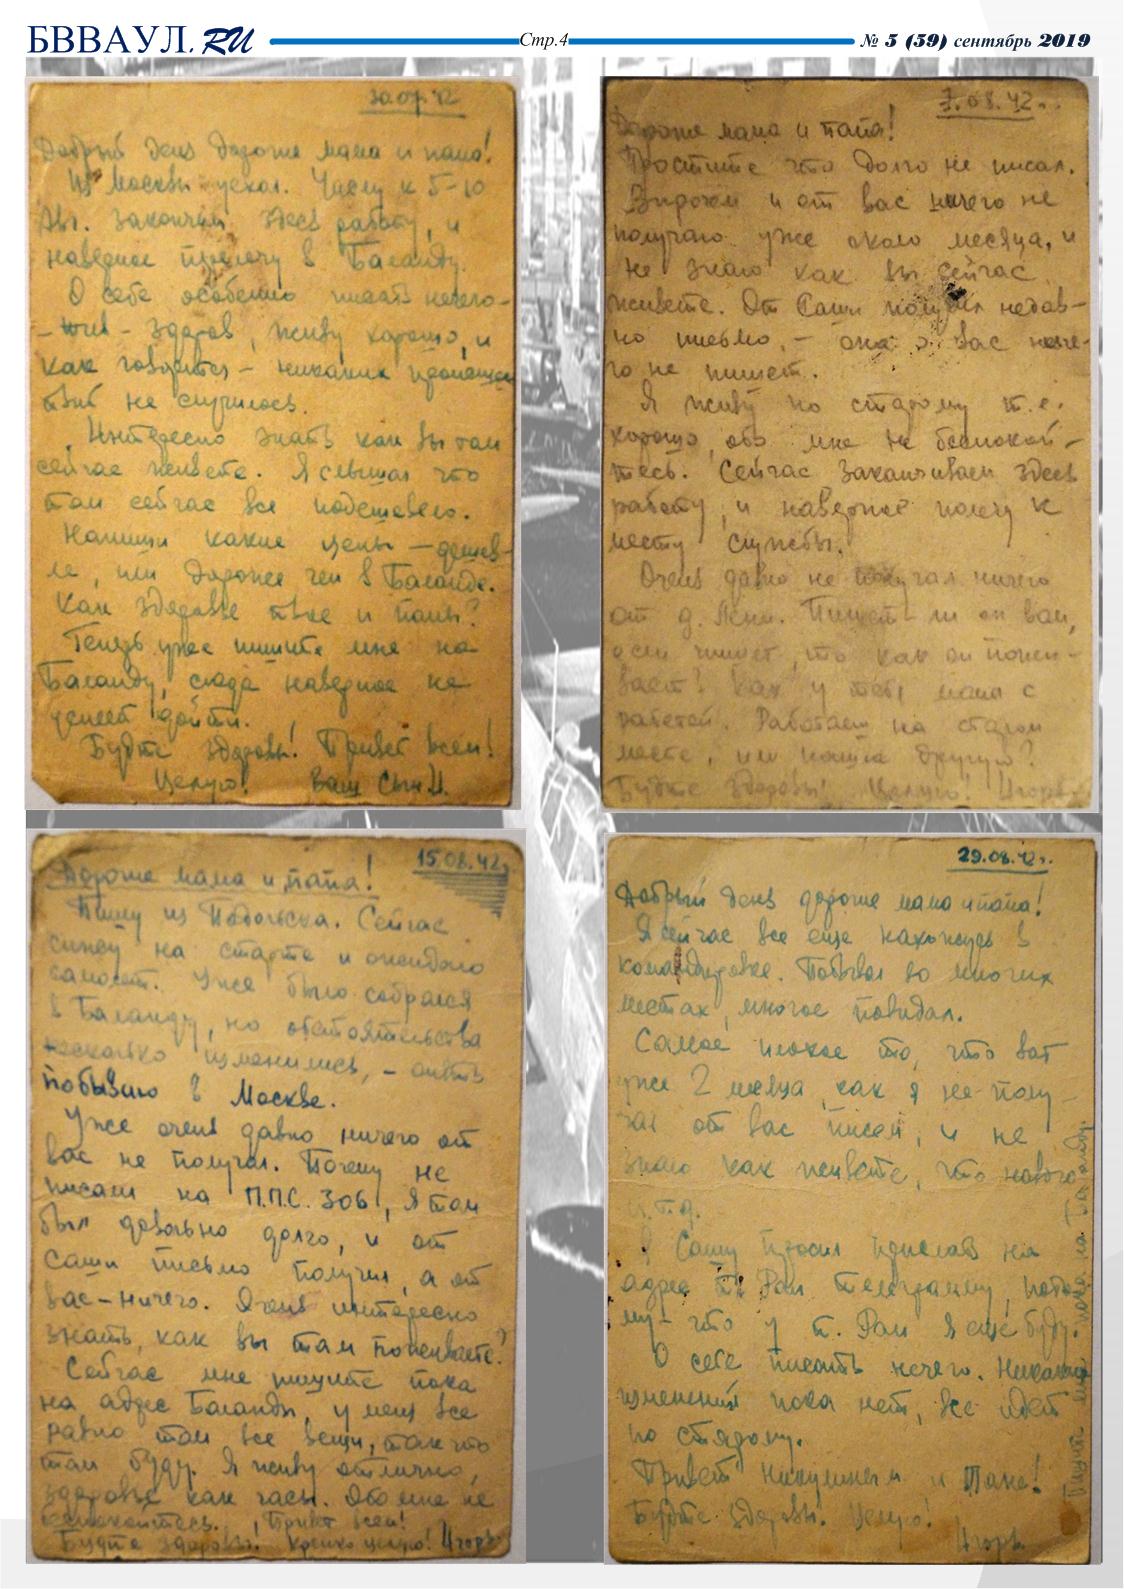 БВВАУЛ.RU
Стр.4
№ 5 (59) сентябрь 2019
30.07.42
Добрый день дорогие мама и папа!
Из Москвы уехал. Числу к 5-10
Авг. закончим здесь работу, и
наверное перелечу в Баланду.
О себе особенно писать нечего-
здоров, живу хорошо, и
как говорится - никаких происшес
твий не случилось.
Интересно знать как вы там
сейчас живете. Я слышал что
там сейчас все подешевело.
Напиши какие цены - дешев-
ле, или дороже чем в Баланде.
Как здоровье твое и папы?
Теперь уже пишите мне на
Баланду, сюда наверное не
успеет дойти.
Будьте здоровы! Привет всем!
Целую! Ваш сын И.
7.08.42г.
Дорогие мама и папа!
Простите что долго не писал.
Впрочем и от вас ничего не
получаю уже около месяца, и
не знаю как вы сейчас
живете. От Саши получил недав-
но письмо, - она о вас ниче-
го не пишет.
Я живу по старому т.е.
хорошо, обо мне не беспокой-
тесь. Сейчас заканчиваем здесь
работу, и наверное полечу к
месту службы.
Очень давно не получал ничего
от д. Яши. Пишет ли он вам,
если пишет, то как он пожи-
вает? Как у тебя мама с
работой. Работаешь на старом
месте, или нашла другую?
Будьте здоровы! Целую! Игорь.
15.08.42г.
Дорогие мама и папа!
Пишу из Подольска. Сейчас
сижу на старте и ожидаю
самолет. Уже было собрался
в Баланду, но обстоятельства
несколько изменились, - опять
побываю в Москве.
Уже очень давно ничего от
вас не получал. Почему не
писали на П.П.С. 306, я там
был довольно долго, и от
Саши письмо получил, а от
вас - ничего. Очень интересно
знать, как вы там поживаете?
Сейчас мне пишите пока
на адрес Баланды, у меня все
равно там все вещи, так что
там буду. Я живу отлично,
здоровье как часы. Обо мне не
беспокойтесь. Привет всем!
Будьте здоровы! Крепко целую! Игорь.
29.08.42г.
Добрый день дорогие мама и папа!
Я сейчас все еще нахожусь в
командировке. Побывал во многих
местах, многое повидал.
Самое плохое то, что вот
уже 2 месяца как я не полу-
чал от вас писем, и не
знаю как живете, что нового
и.т.д.
Сашу просил прислать на
адрес т. Раи телеграмму, пото-
му - что у т. Раи я еще буду.
О себе писать нечего. Никаких
изменений пока нет, все идет
по старому.
Привет Никулиным и Тане!
Будьте здоровы! Целую!
Игорь
Пишите мне пока на Баланду.